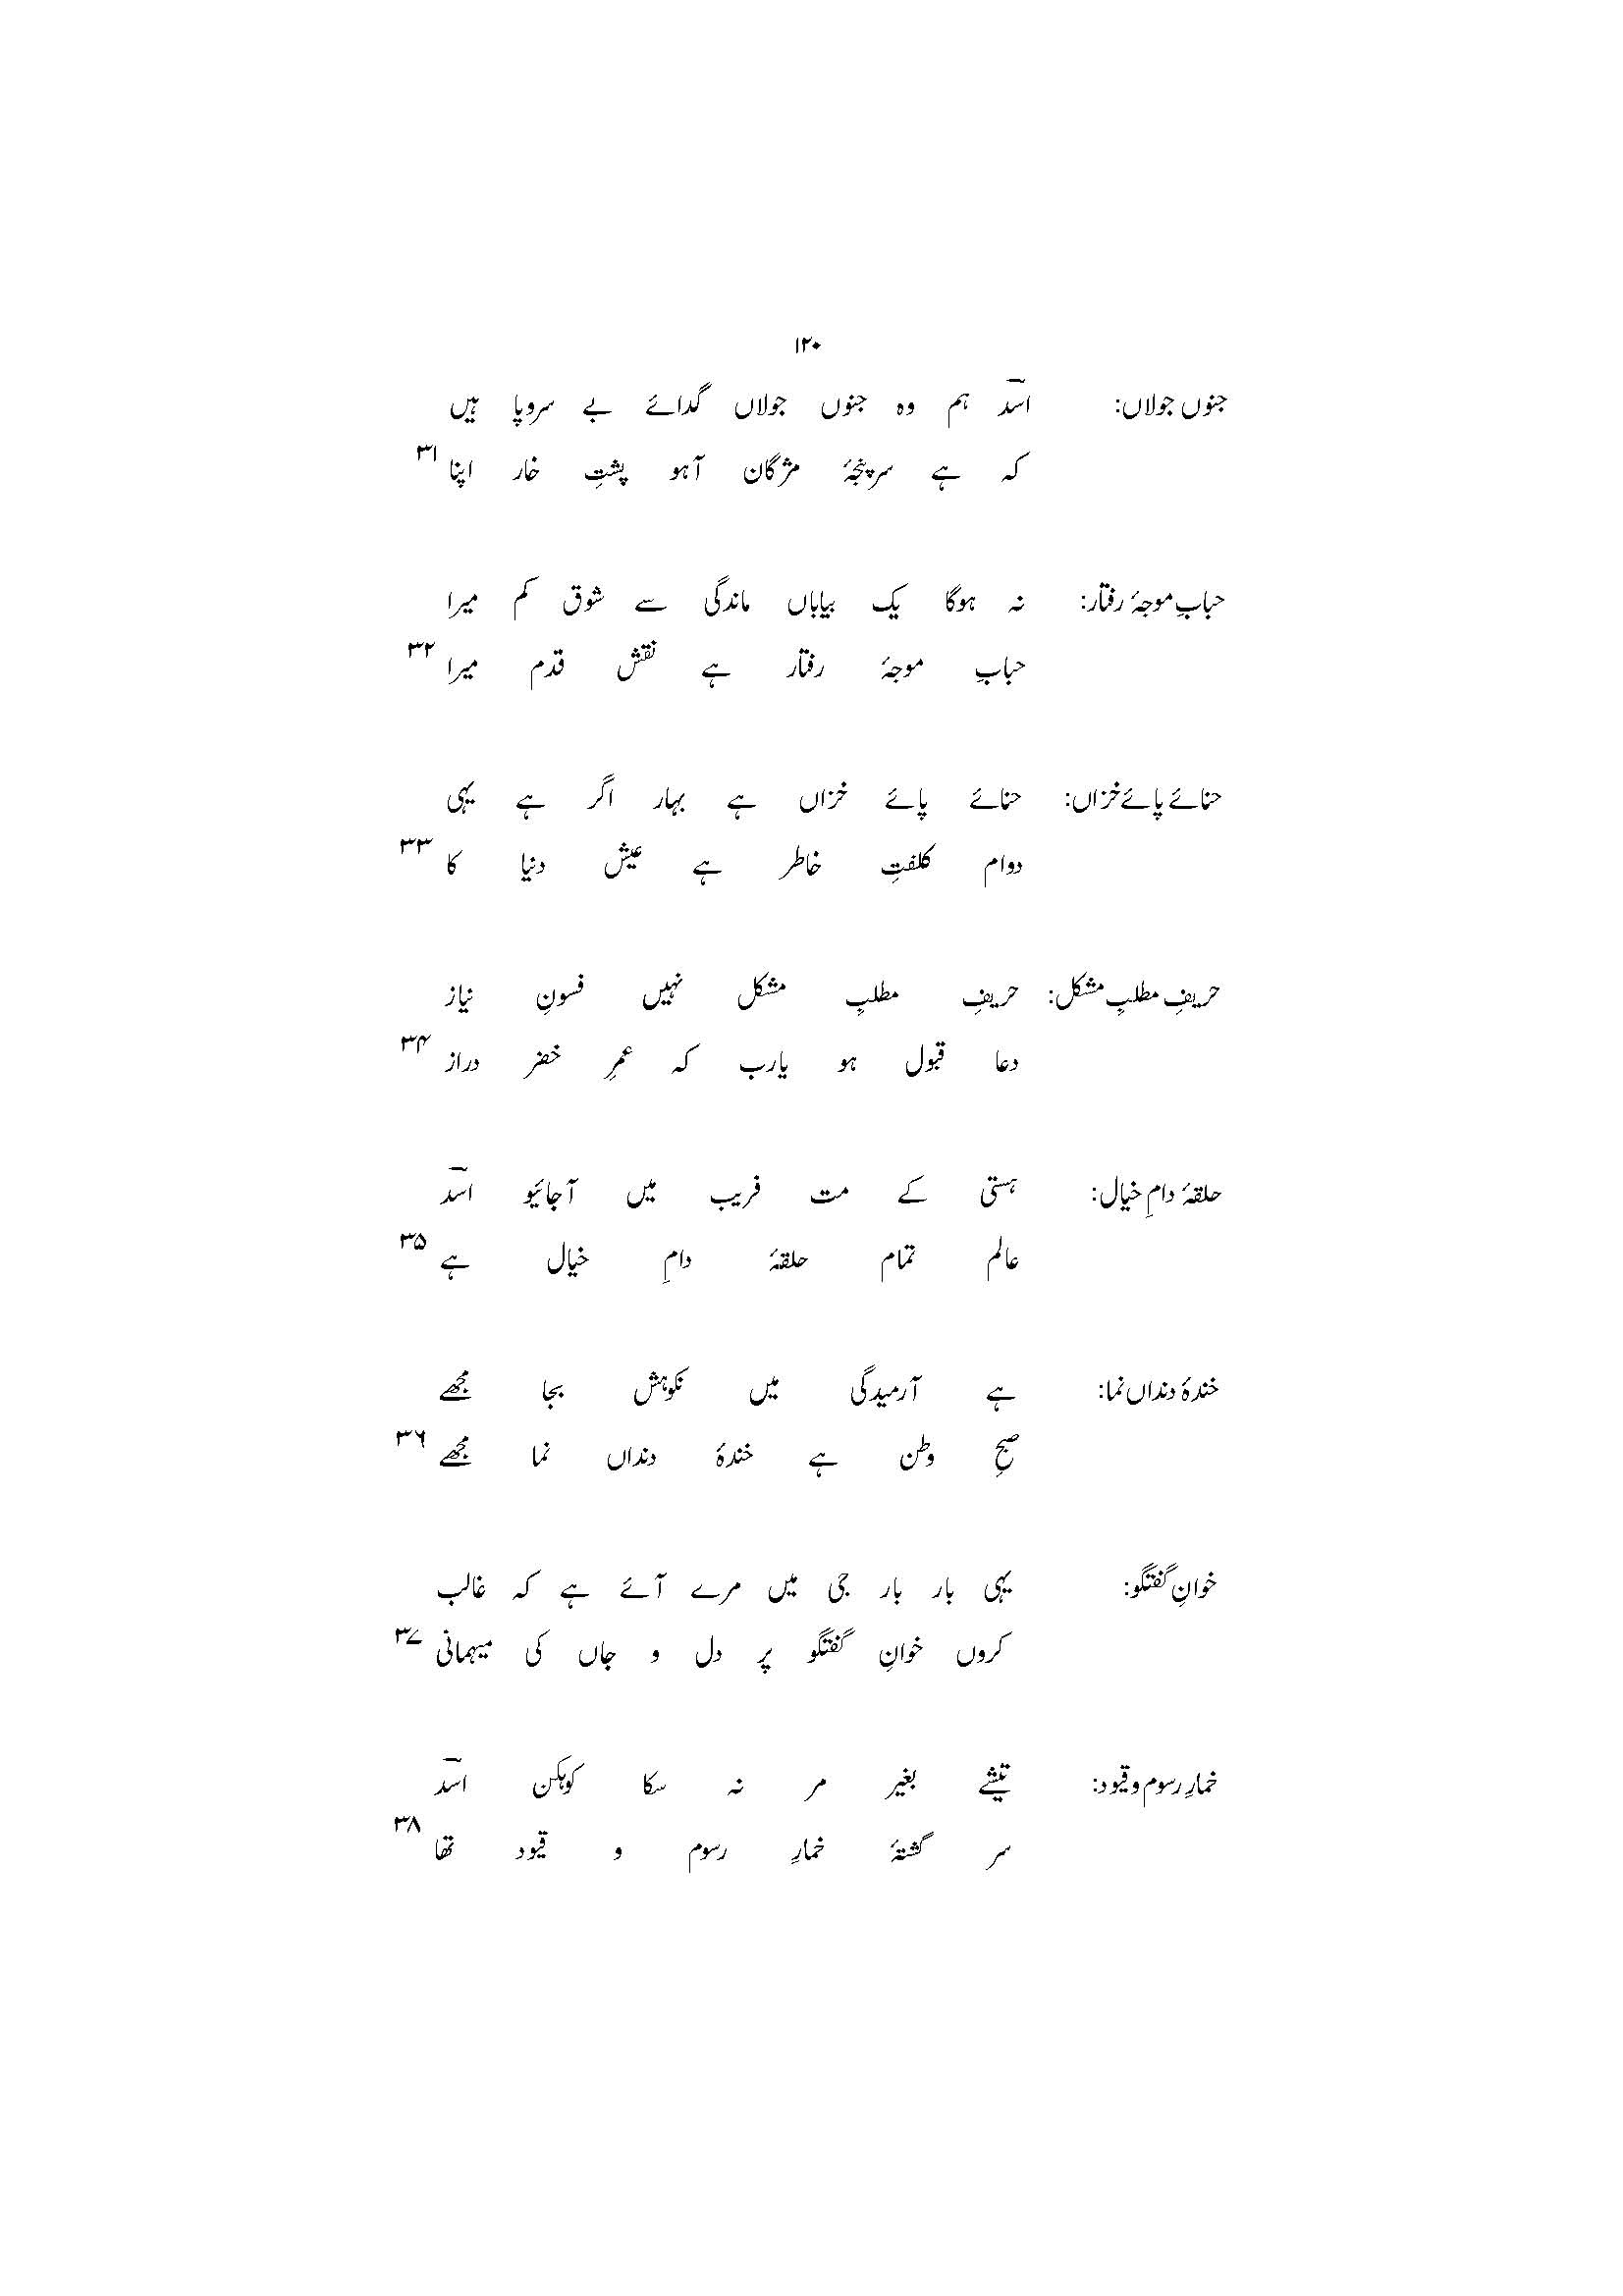 ۱۲۰
جنوں جولاں: اسدؔ ہم وہ جنوں جولاں گدائے بے سروپا ہیں
کہ ہے سرپنجۂ مژگان آہو پشتِ خار اپنا ۳۱
حبابِ موجۂ رفتار: نہ ہوگا یک بیاباں ماندگی سے شوق کم میرا
حبابِ موجۂ رفتار ہے نقش قدم میرا ۳۲
حنائے پائے خزاں: حنائے پائے خزاں ہے بہار اگر ہے یہی
دوام کلفتِ خاطر ہے عیش دنیا کا ۳۳
حریفِ مطلبِ مشکل: حریفِ مطلبِ مشکل نہیں فسونِ نیاز
دعا قبول ہو یارب کہ عمرِ خضر دراز ۳۴
حلقۂ دامِ خیال: ہستی کے مت فریب میں آجائیو اسدؔ
عالم تمام حلقۂ دامِ خیال ہے ۳۵
خندۂ دنداں نما: ہے آرمیدگی میں نکوہش بجا مجھے
صبحِ وطن ہے خندۂ دنداں نما مجھے ۳۶
خوانِ گفتگو: یہی بار بار جی میں مرے آئے ہے کہ غالب
کروں خوانِ گفتگو پر دل و جاں کی میہمانی ۳۷
خمارِ رسوم و قیود: تیشے بغیر مر نہ سکا کوہکن اسدؔ
سر گشتۂ خمارِ رسوم و قیود تھا ۳۸